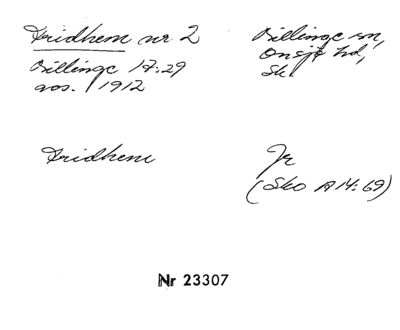 Fridhem nr 2
Billinge sn,
Onsjö hd,
Sk.
Billinge 17:29
avs. 1912
Fridhem
Jr
(Sko A14:69)
Nr 23307